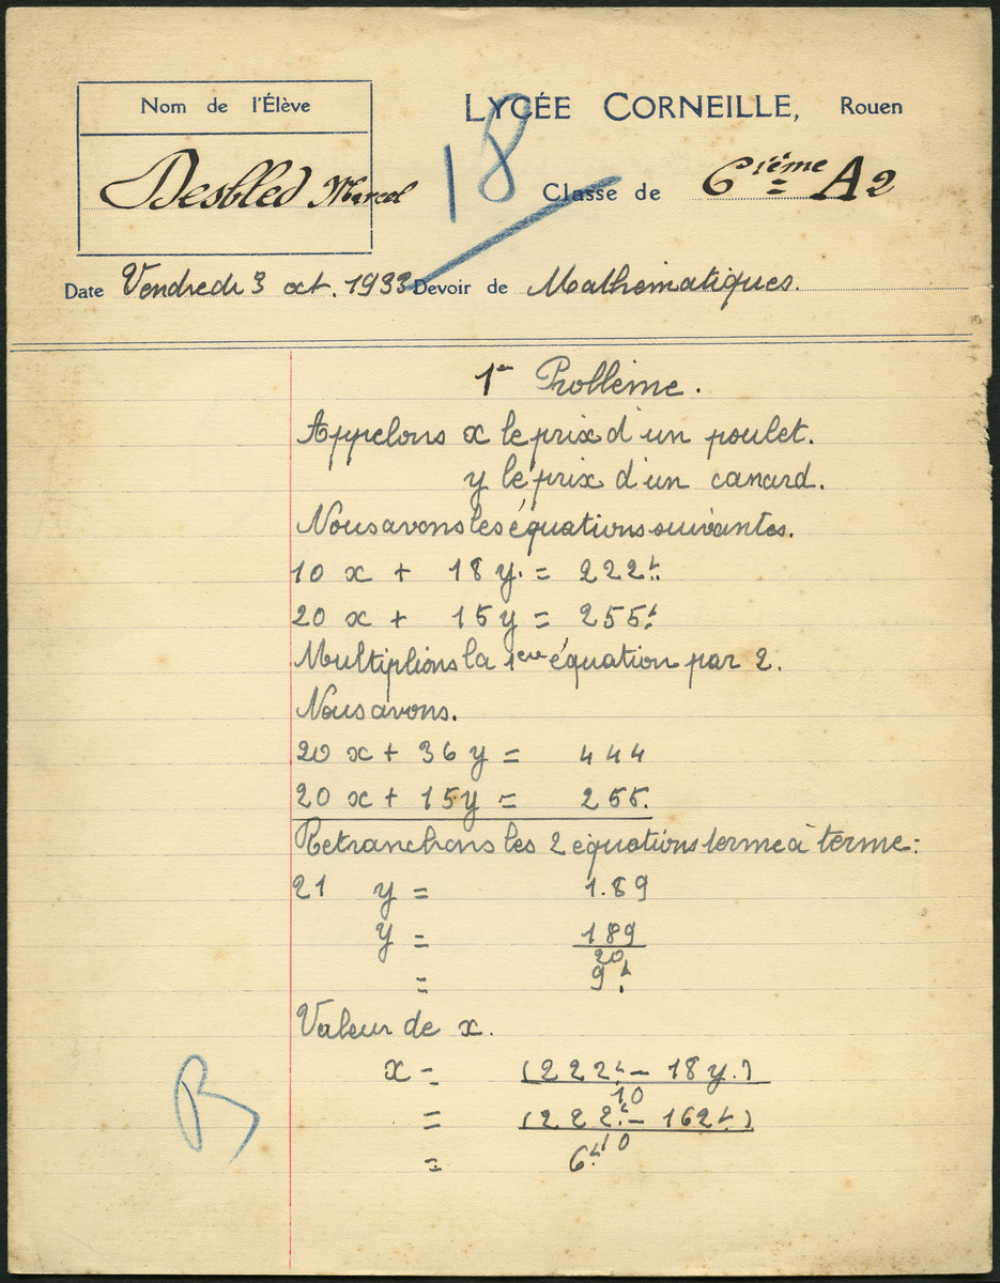 Nom de l'Élève
LYCÉE CORNEILLE, Rouen
18
Desbled Marcel
Classe de 6ième A2
Date Vendredi 3 oct. 1933 Devoir de Mathématiques.
1er Problème.
Appelons x le prix d'un poulet.
y le prix d'un canard.
Nous avons les équations suivantes.
10 x + 18 y = 222f.
20 x + 15 y = 255f.
Multiplions la 1ère équation par 2.
Nous avons.
20 x + 36 y = 444
20 x + 15 y = 255.
Retranchons les 2 équations terme à terme:
21 y = 1.89
y = 189
20
= 9f.
Valeur de x.
x = (222f. - 18 y.)
10
= (222f. - 162f.)
10
= 6f.
B